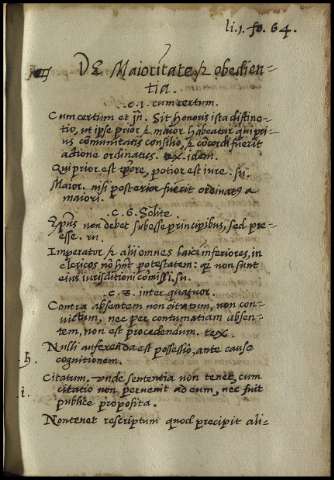 li. 1. fo. 64.
DE Maioritate & obedien-
tia.
c. 1. cum certum.
Cum certum et jn. Sit honoris ista distinc-
tio, ut ipse prior & maior habeatur qui pri-
us comunitatis consilio, & cocordi fuerit
actione ordinatus. tex. idem.
Qui prior est tpore, potior est iure.
Maior. nisi posterior fuerit ordinatus a
maiori.
c. 6. Solite.
Epus non debet subesse principibus, sed pre-
esse.
Imperator & alij omnes laici inferiores, in
clericos no hnt potestatem: q non sunt
eius iurisditioni comissi.
c. inter quatuor.
Contra absentem non citatum, non con-
victum, nec per contumatiam absen-
tem, non est procedendum. tex.
h. Nulli auferenda est possessio, ante cause
cognitionem.
i. Citatum, unde sententia non tenet, cum
citatio non pervenit ad eum, nec fuit
publice proposita.
Non tenet rescriptum quod precipit ali-